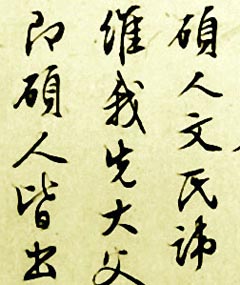 碩人文氏諱
維我先大父
即碩人皆出